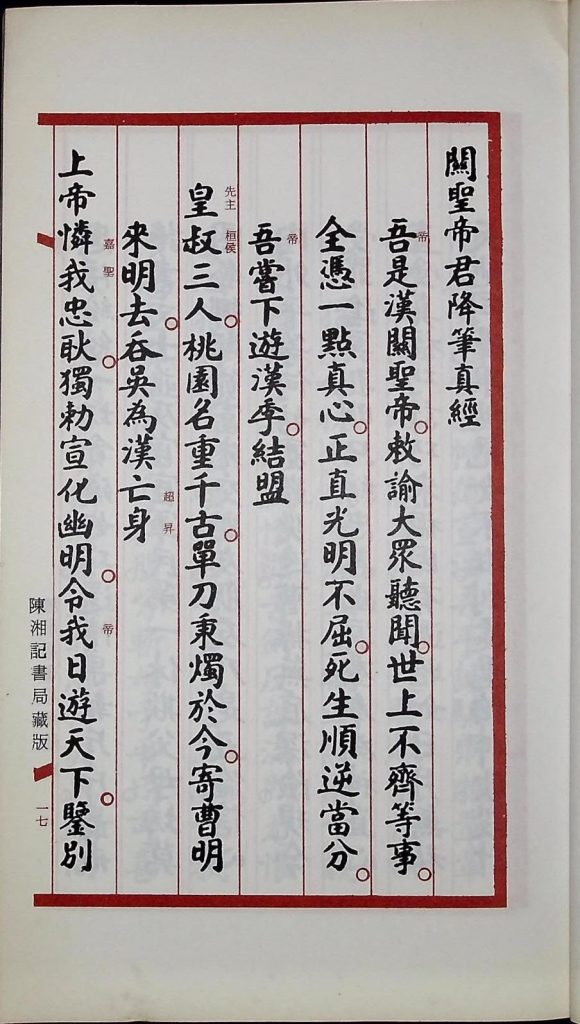 關聖帝君降筆真經
帝
吾是漢關聖帝敕諭大眾聽聞世上不齊等事
全憑一點真心正直光明不屈死生順逆當分
帝
吾嘗下遊漢季結盟
先主 桓侯
皇叔三人桃園名重千古單刀秉燭於今寄曹明
超昇
來明去吞吳為漢亡身
嘉聖 帝
上帝憐我忠耿獨勅宣化幽明令我日遊天下鑒別
陳湘記書局藏版
一七